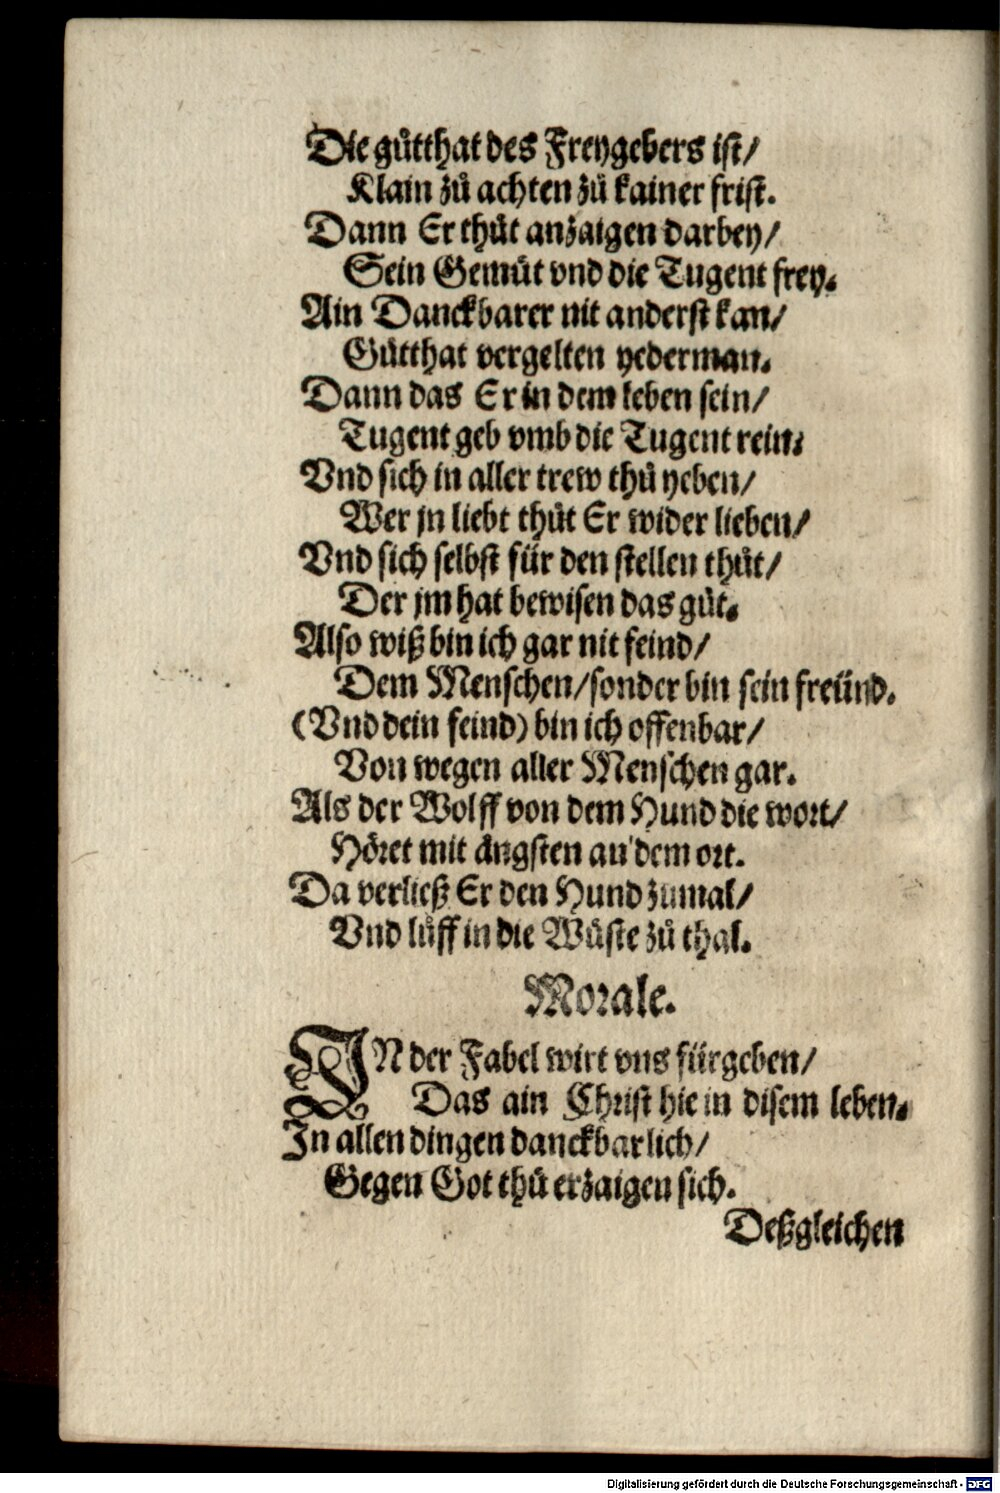 Die gůtthat des Freygebers ist/
Klain zů achten zů kainer frist.
Dann Er thůt anzaigen darbey/
Sein Gemůt vnd die Tugent frey.
Ain Danckbarer nit anderst kan/
Gůtthat vergelten yederman.
Dann das Er in dem leben sein/
Tugent geb vmb die Tugent rein.
Vnd sich in aller trew thů yeben/
Wer jn liebt thůt Er wider lieben/
Vnd sich selbst für den stellen thůt/
Der jm hat bewisen das gůt.
Also wiß bin ich gar nit feind/
Dem Menschen/sonder bin sein freünd.
(Vnd dein feind) bin ich offenbar/
Von wegen aller Menschen gar.
Als der Wolff von dem Hund die wort/
Höret mit ängsten an dem ort.
Da verließ Er den Hund zumal/
Vnd lůff in die Wüste zů thal.
Morale.
IN der Fabel wirt vns fürgeben/
Das ain Christ hie in disem leben.
In allen dingen danckbarlich/
Gegen Got thů erzaigen sich.
Deßgleichen
Digitalisierung gefördert durch die Deutsche Forschungsgemeinschaft - DFG